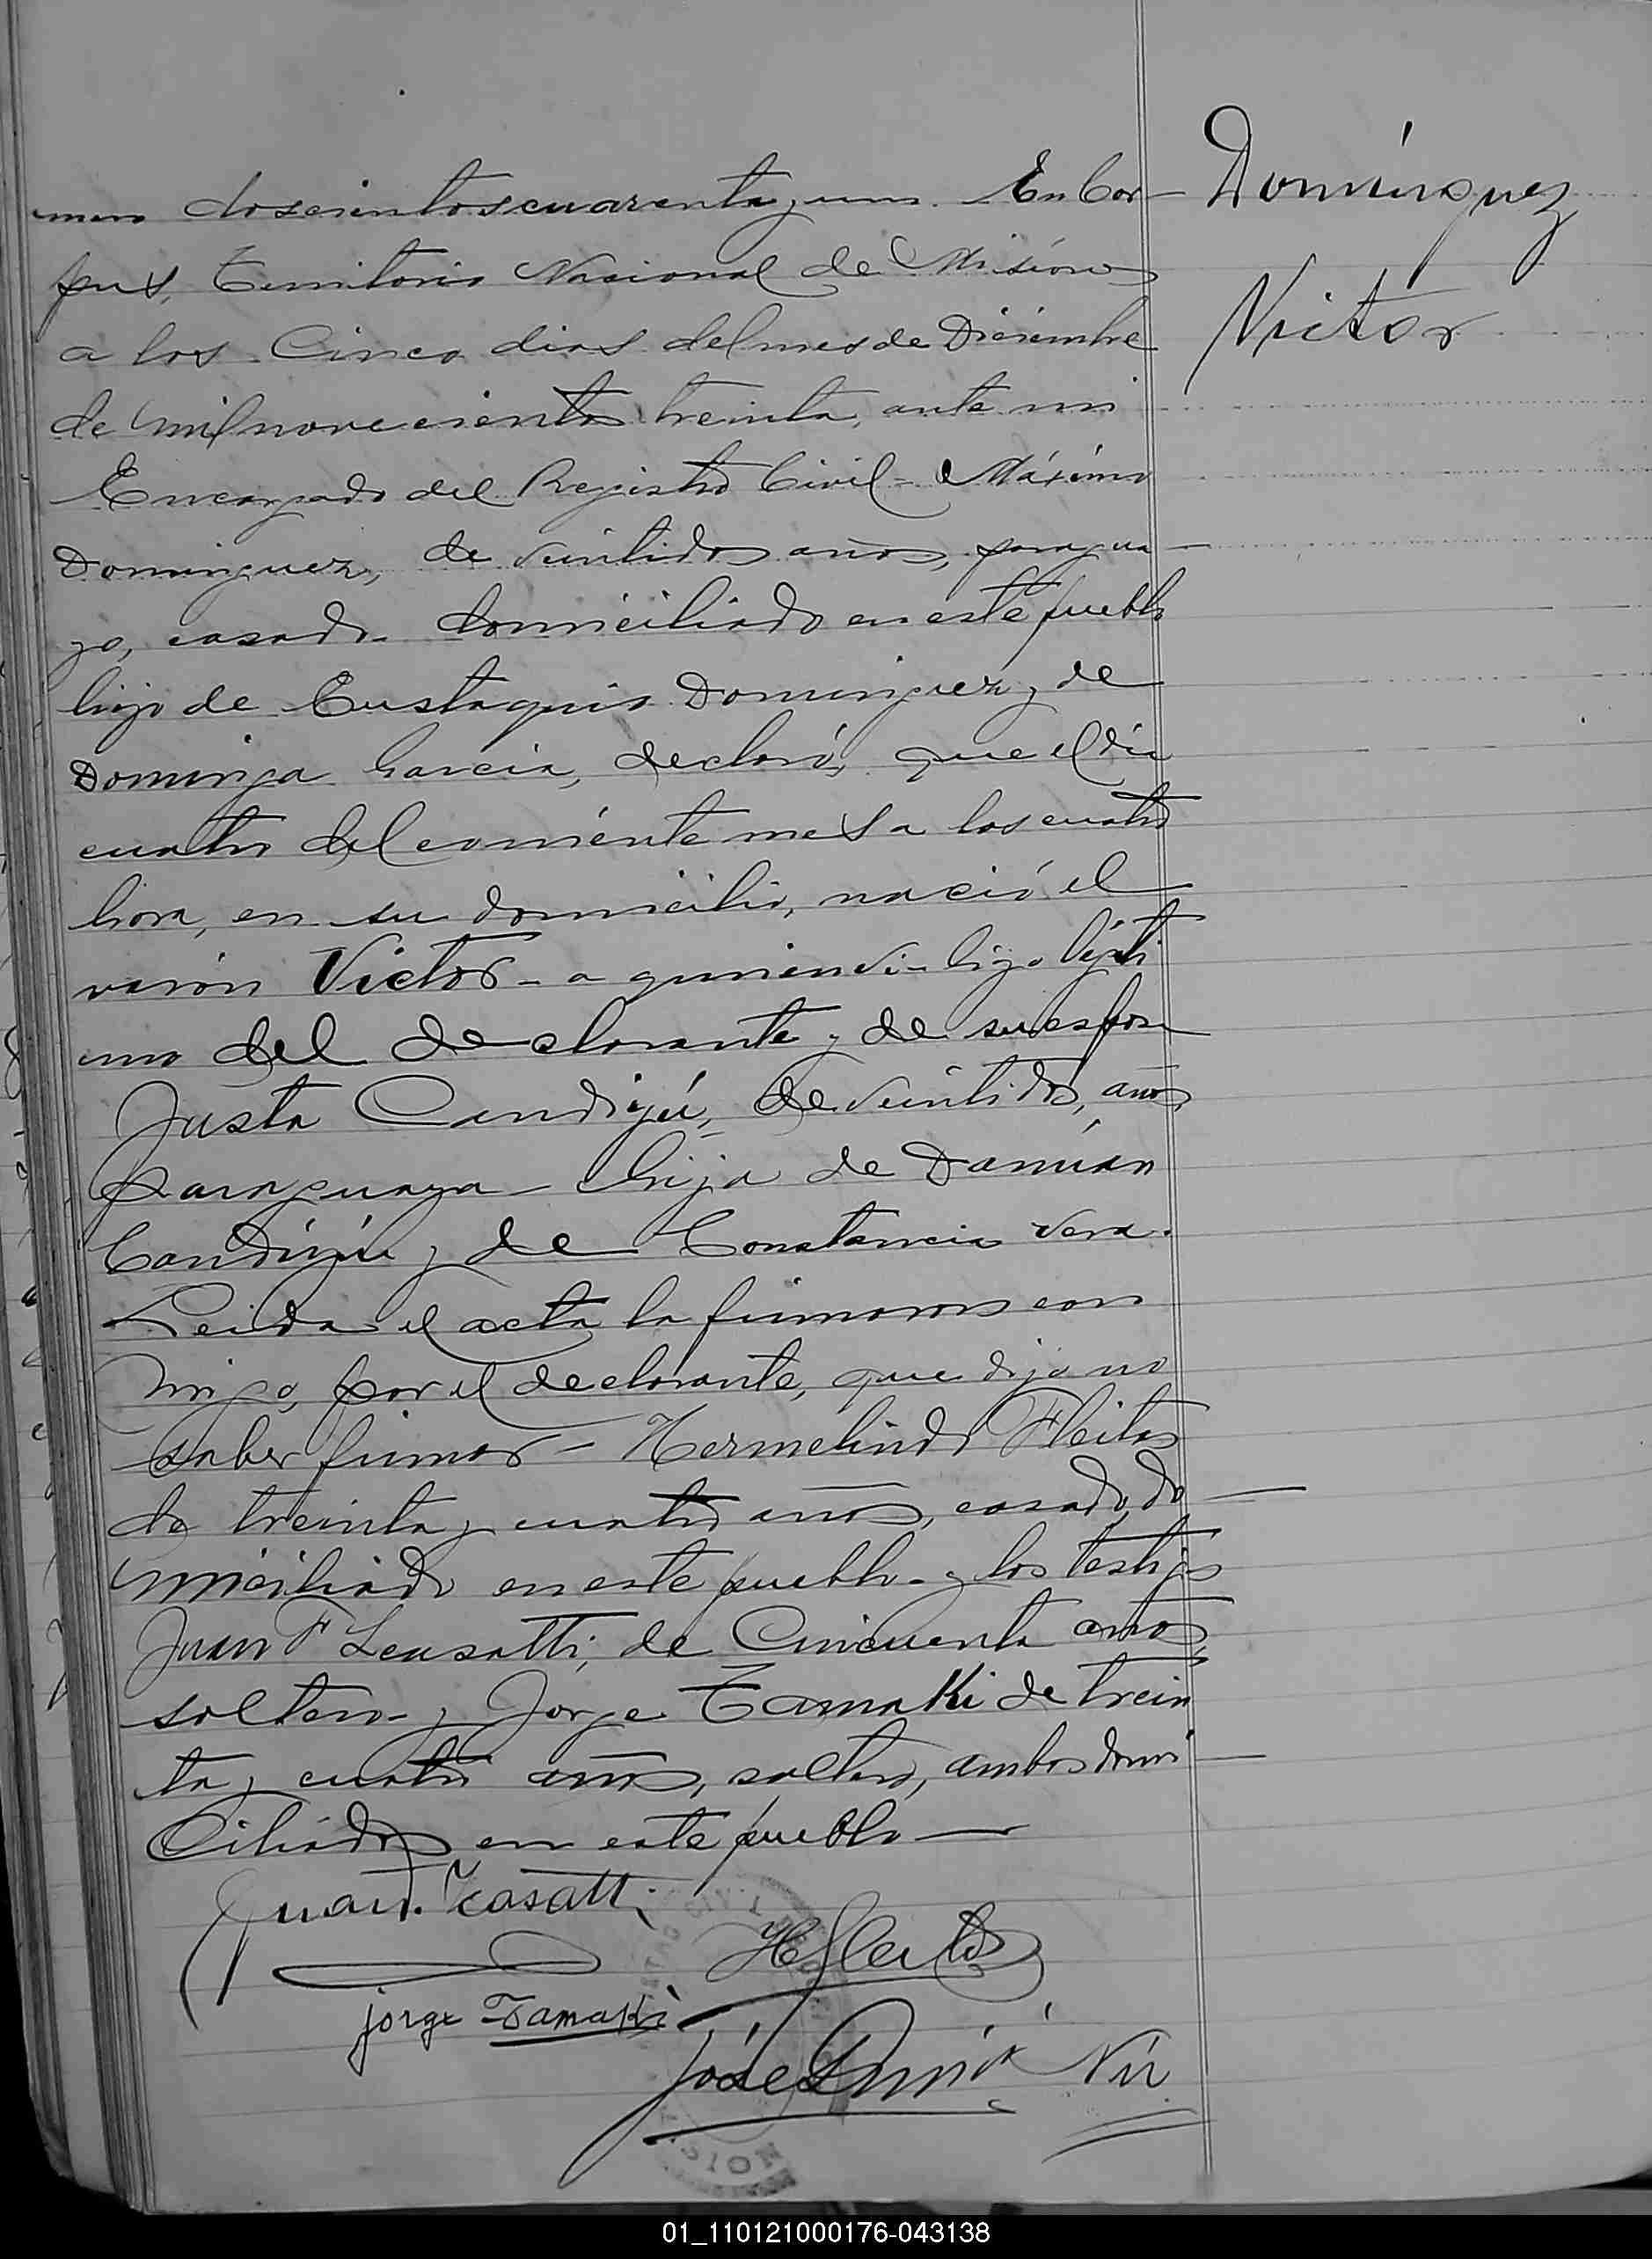 Domínguez
Victor
mero doscientoscuarenta y uno. En Cor-
pus, Territorio Nacional de Misiones
a los Cinco dias del mes de Diciembre
de mil novecientos treinta, ante mi
Encargado del Registro Civil - Máximo
Dominguez, de veintidos años, paragua-
yo, casado domiciliado en este pueblo
hijo de Eustaquio Dominguez y de
Dominga Garcia, declaró, que el día
cuatro del corriente mes a las cuatro
hora, en su domicilio, nació el
varón Victor - a quien vi - hijo legíti
mo del declarante y de su esposa
Justa Candiyú, de veintidos, años
paraguaya - hija de Damián
Candiyú y de Constancia Vera.
Leida el acta la firmaron con
migo, por el declarante, que dijo no
saber firmar - Hermelindo Fleitas
de treinta y cuatro años, casado, do-
miciliado en este pueblo - y los testigos
Juan F Casatti, de Cincuenta años,
soltero - y Jorge Tamaki de trein
ta y cuatro años, soltero, ambos domi-
Ciliados en este pueblo —
Juan F. Casatti
H Fleitas
jorge Tamaki
José
01_110121000176-043138